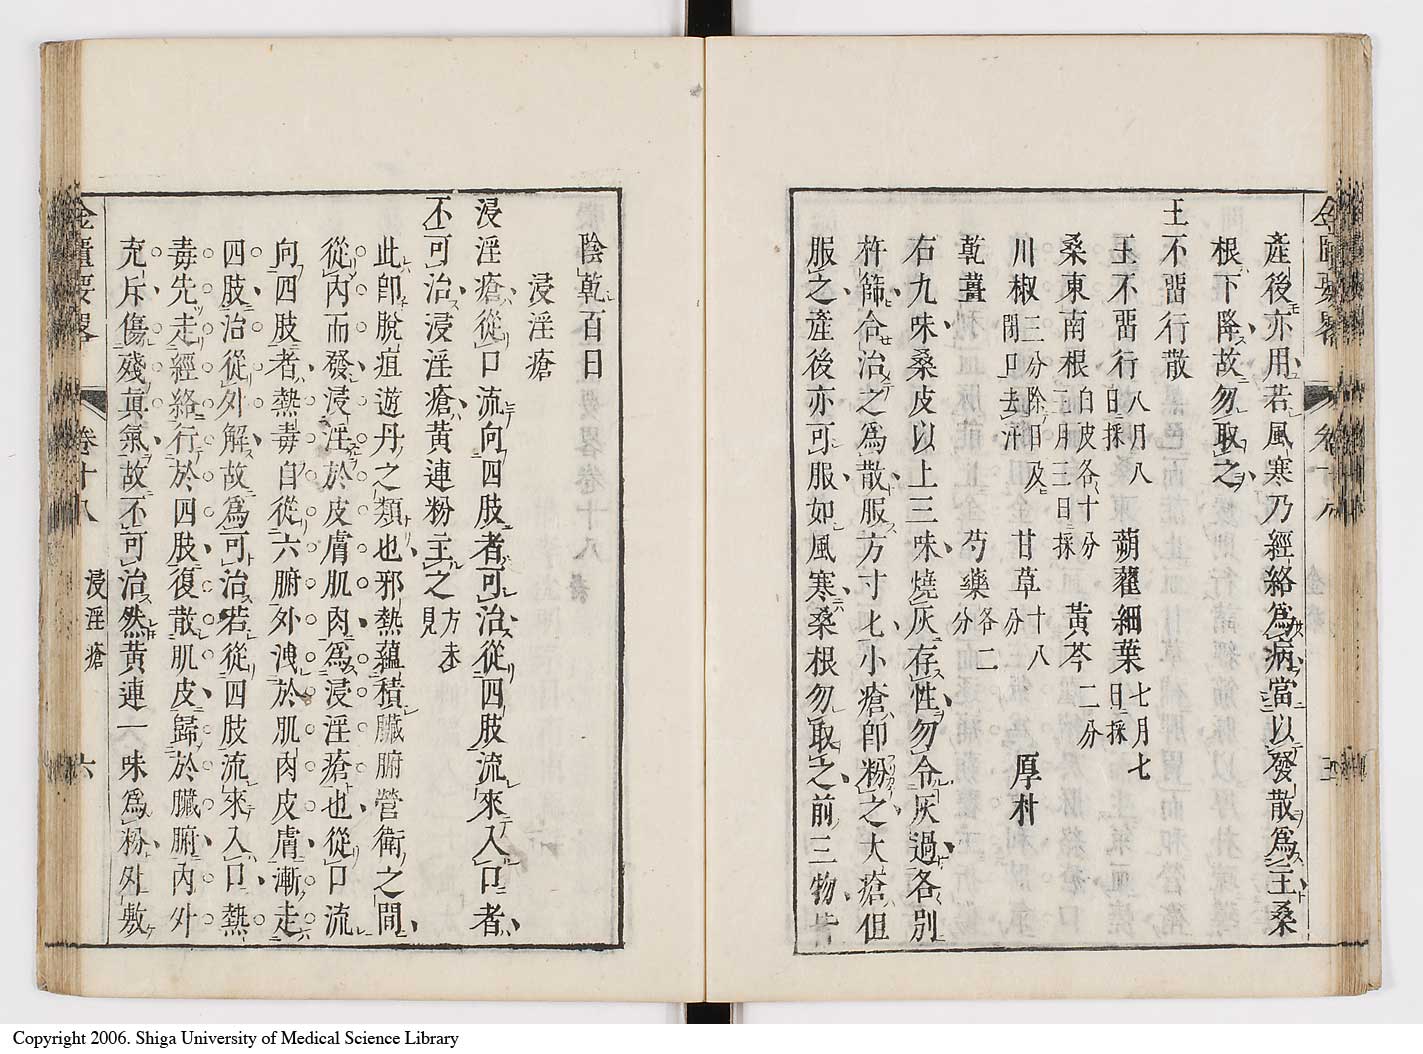 產後亦用若風寒乃經絡爲病當以發散爲主桑
根下降故勿取之
王不畱行散
王不畱行八月八日採 蒴藋細葉七月七日採
桑東南根白皮各十分三月三日採 黃芩二分
川椒三分除目及閉口去汗 甘草十八分 厚朴
乾薑 芍藥各二分
右九味桑皮以上三味燒灰存性勿令灰過各別
杵篩合治之爲散服方寸匕小瘡即粉之大瘡但
服之產後亦可服如風寒桑根勿取之前三物皆
陰乾百日
浸淫瘡
浸淫瘡從口流向四肢者可治從四肢流來入口者
不可治浸淫瘡黃連粉主之方未見
此卽脫疽遊丹之類也邪熱蘊積臟腑營衛之間
從內而發浸淫於皮膚肌肉爲浸淫瘡也從口流
向四肢者熱毒自從六腑外洩於肌肉皮膚漸走
四肢治從外解故爲可治若從四肢流來入口熱
毒先走經絡行於四肢復散肌皮歸於臟腑內外
充斥傷殘眞氣故不可治然黃連一味爲粉外敷
金匱要畧 卷十八 浸淫瘡 六
Copyright 2006. Shiga University of Medical Science Library